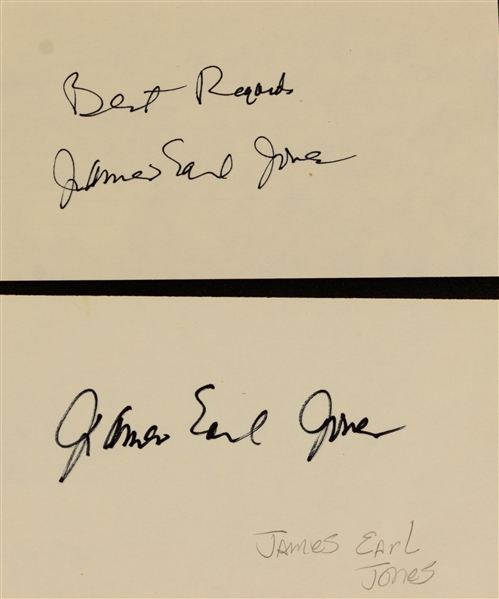 Best Regards
James Earl Jones
James Earl Jones
James Earl
Jones